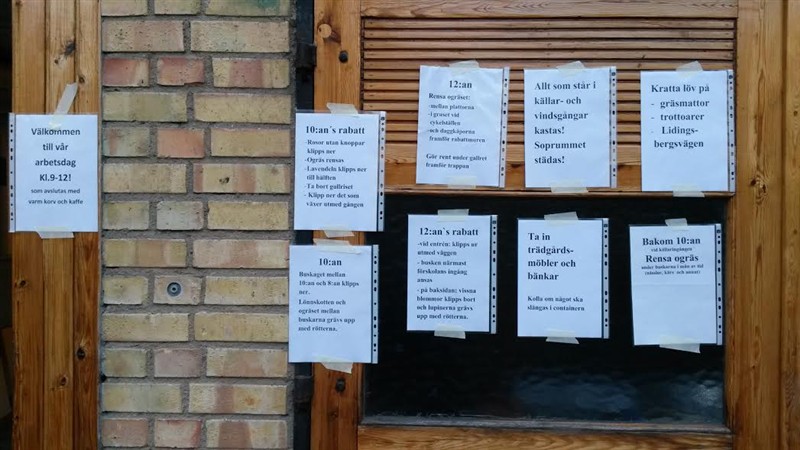 Välkommen
till vår
arbetsdag
Kl.9-12!
som avslutas med
varm korv och kaffe
10:an`s rabatt
-Rosor utan knoppar
klipps ner
-Ogräs rensas
-Lavendeln klipps ner
till hälften
- Ta bort gallriset
- Klipp ner det som
växer utmed gången
10:an
Buskaget mellan
10:an och 8:an klipps
ner.
Lönnskotten och
ogräset mellan
buskarna grävs upp
med rötterna.
12:an
Rensa ogräset:
-mellan plattorna
-i gruset vid
cykelställen
-och daggkåporna
framför rabattmuren
Gör rent under gallret
framför trappan
Allt som står i
källar- och
vindsgångar
kastas!
Soprummet
städas!
Kratta löv på
- gräsmattor
- trottoarer
- Lidings-
bergsvägen
12:an`s rabatt
-vid entrén: klipps av
utmed väggen
- busken närmast
förskolans ingång
ansas
- på baksidan: vissna
blommor klipps bort
och lupinerna grävs
upp med rötterna.
Ta in
trädgårds-
möbler och
bänkar
Kolla om något ska
slängas i containern
Bakom 10:an
vid källaringången
Rensa ogräs
under buskarna i mån av tid